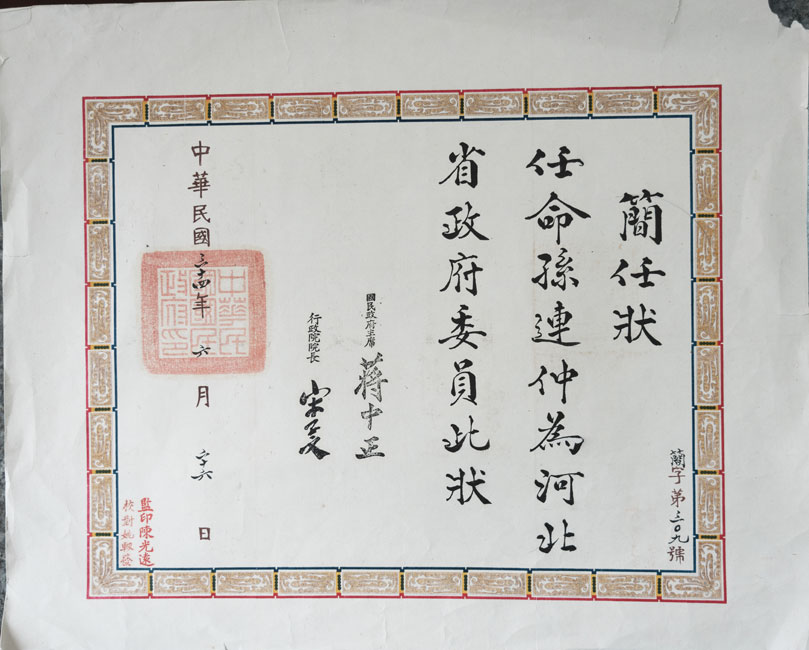 簡任狀
任命孫連仲為河北
省政府委員此狀
國民政府主席 蔣中正
行政院院長 宋子文
中華民國三十四年六月二十六日
中華民國國民政府印
簡字第三〇九號
監印陳光遠
校對姚